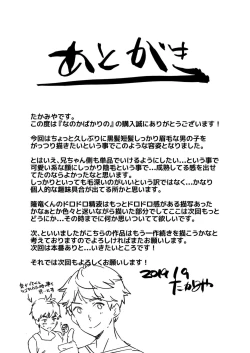 あとがき
たかみやです。
この度は『なのかばかりの』の購入誠にありがとうございます！
今回はちょっと久しぶりに黒髪短髪しっかり眉毛な男の子を
がっつり描きたいという事でこのような容姿となりました。
とはいえ、兄ちゃん側も単品でいけるようにしたい…という事で
可愛い系な顔にしっかり陰毛という事で…成熟してる感を出せ
てたのならよかったなと思います。
しっかりといっても毛深いのがいいという訳ではなく…かなり
個人的な趣味具合が出てる所かと思います。
隆竜くんのドロドロ精液はもっとドロドロ感がある描写あった
かなぁとか色々と迷いながら描いた部分でしてここは次回もっと
どうにか…その時までに何か思いついて欲しいです。
次、といいましたがこちらの作品はもう一作続きを描こうかなと
考えておりますのでよろしければまたお願いします。
次回は本番ありと…いいですね…！
それでは次回もよろしくお願いします！
2019.1.9
たかみや